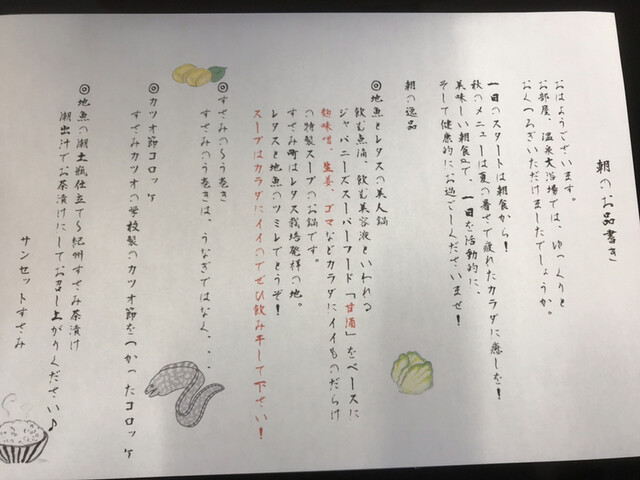 朝のお品書き
おはようございます。
お部屋、温泉大浴場では、ゆっくりと
おくつろぎいただけましたでしょうか。
一日のスタートは朝食から！
秋のメニューは夏の暑さで疲れたカラダに癒しを！
美味しい朝食で、一日を活動的に、
そして健康的にお過ごしくださいませ！
朝の逸品
◎地魚とレタスの美人鍋
飲む点滴、飲む美容液といわれる
ジャパニーズスーパーフード「甘酒」をベースに
麹味噌、生姜、ゴマなどカラダにイイものだらけ
の特製スープのお鍋です。
すさみ町はレタス栽培発祥の地。
レタスと地魚のツミレでどうぞ！
スープはカラダにイイのでぜひ飲み干して下さい！
◎すさみのう巻き
すさみのう巻きは、うなぎではなく、・・・
◎カツオ節コロッケ
すさみカツオの学校製のカツオ節をつかったコロッケ
◎地魚の潮土瓶仕立て〜紀州すさみ茶漬け
潮出汁でお茶漬けにしてお召し上がりください♪
サンセットすさみ